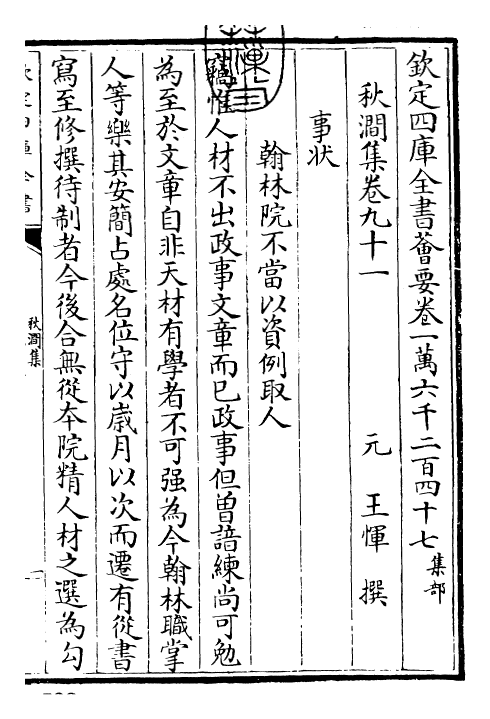 欽定四庫全書薈要卷一萬六千二百四十七 集部
秋澗集卷九十一 元 王惲 撰
事状
翰林院不當以資例取人
竊惟人材不出政事文章而已政事但曽諳練尚可勉
為至於文章自非天材有學者不可强為今翰林職掌
人等樂其安簡占處名位守以歳月以次而遷有從書
寫至修撰待制者今後合無從本院精人材之選為勾
秋澗集